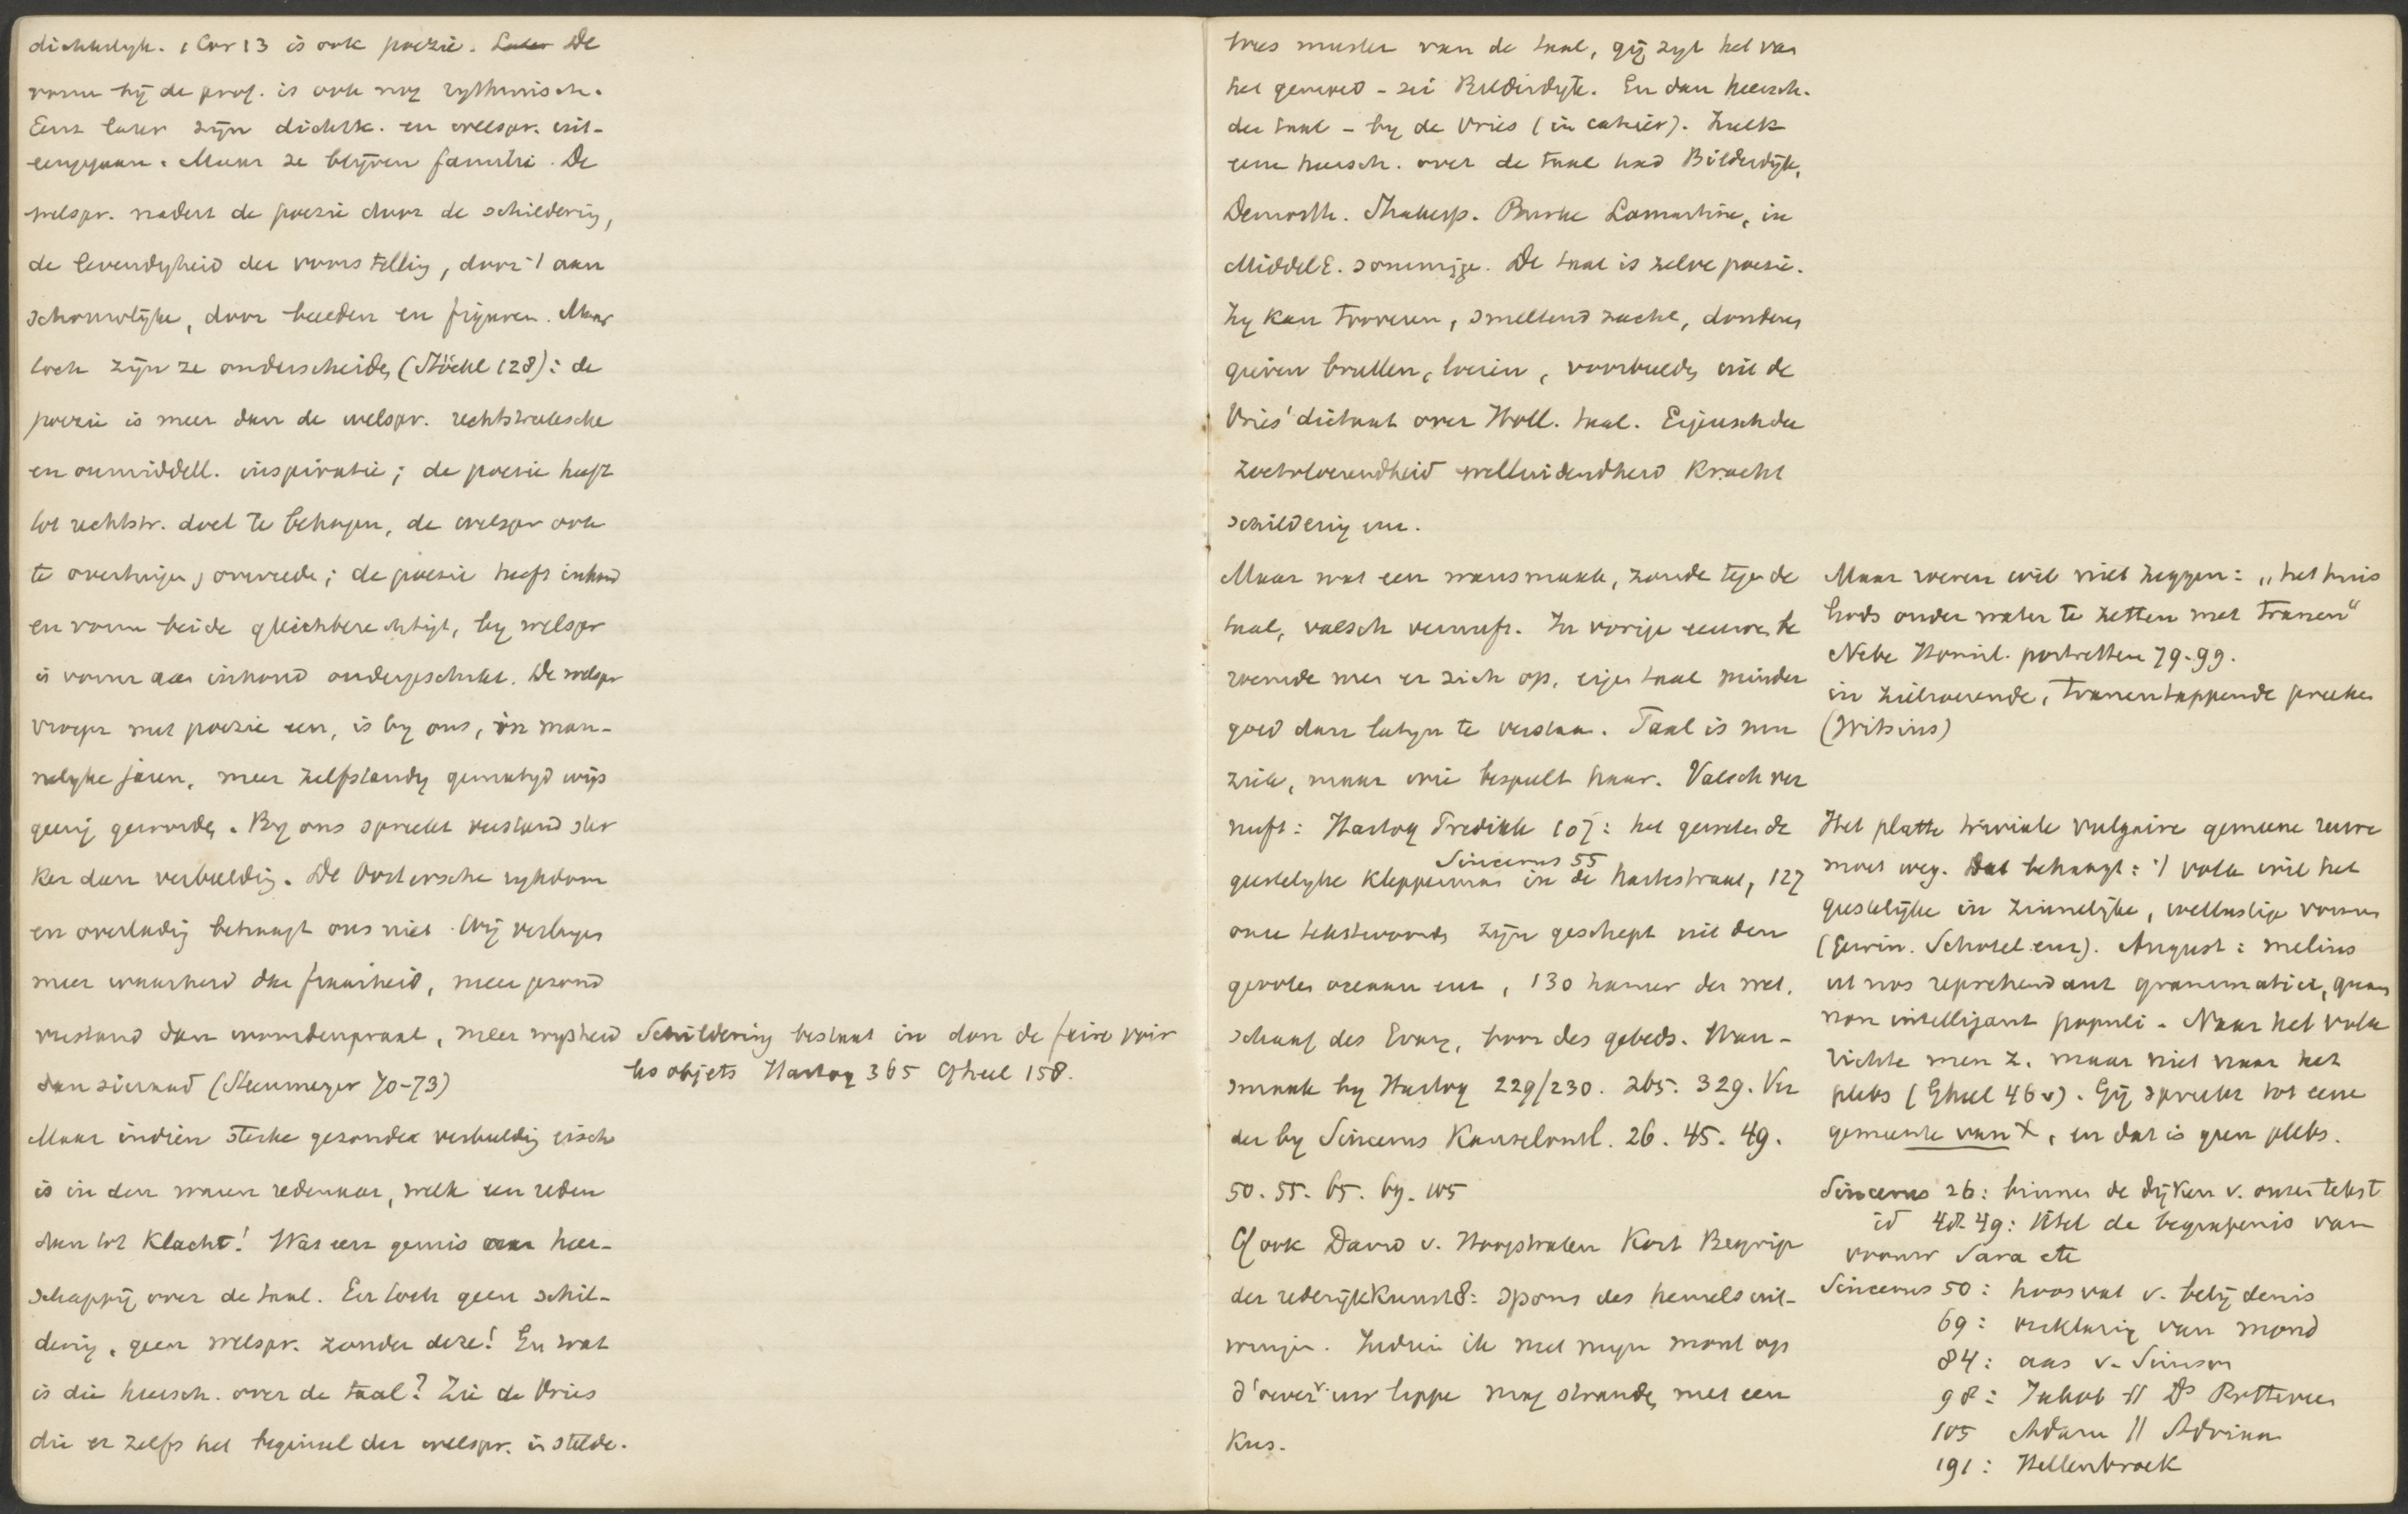 dichterlyk. 1 Cor 13 is ook poezie. Later De
vorm bij de prof. is ook nog rythmisch.
Eerst later zijn dichtk. en welspr. uit-
eengegaan. Maar ze blijven familie. De
welspr. nadert de poezie door de schildering,
de levendigheid der voorstelling, door 't aan
schouwelijke, door beelden en figuren. Maar
toch zijn ze onderscheiden (Stöckl 128): de
poezie is meer dan de welspr. rechtstreeksche
en onmiddell. inspiratie; de poezie heeft
tot rechtstr. doel te behagen, de welspr ook
te overtuigen, overreden; de poezie heeft inhoud
en vorm beide gleichberechtigt, by welspr
is vorm aan inhoud ondergeschikt. De welspr
vroeger met poezie een, is by ons, in man-
nelyke jaren, meer zelfstandig gematigd wijs
geerig geworden. By ons spreekt verstand ster
ker dan verbeelding. De Oostersche rykdom
en overlading behaagt ons niet. Wij verlangen
meer waarheid dan fraaiheid, meer gezond
verstand dan woordenpraal, meer wysheid
dan sieraad (Steenmeyer 70-73)
Maar indien sterke gezonde verbeelding eisch
is in den waren redenaar, welk een reden
dan tot klacht! Wat een gemis aan heer-
schappij over de taal. En toch geen schil-
dering, geen welspr. zonder deze! En wat
is die heersch. over de taal? Zie de Vries
die er zelfs het beginsel der welspr. in stelde.
Schildering bestaat in don de faire voir
les objets Hartog 365 Gheel 158.
wees meester van de taal, gij zyt het van
het gemoed - zei Bilderdyk. En dan heersch.
der taal - by de Vries (in cahier). Zulk
eene heersch. over de taal had Bilderdijk,
Demosth. Shakesp. Burke Lamartine, in
MiddelE. sommige. De taal is zelve poezie.
Zy kan tooveren, smeltend zacht, donderen
gieren brullen, loeien, voorbeelden uit de
Vries' dictaat over Holl. taal. Eigenschden
zoetvloeiendheid welluidendheid kracht
schildering enz.
Maar wat een wansmaak, zonde tegen de
taal, valsch vernuft. In vorige eeuwen be
roemde men er zich op, eigen taal minder
goed dan latyn te verstaan. Taal is onze
ziele, maar wie bespeelt haar. Valsch ver
nuft: Hartog Predikk 107: het gewetende
Sincerus 55
geestelyke klepperman in de hartestraat, 127
onze tekstwoorden zijn geschept uit den
grooten oceaan enz, 130 hamer der wet,
schaaf des Evang, boor des gebeds. Wan-
smaak by Hartog 229/230. 265. 329. Ver
der by Sincerus Kanselontl. 26. 45. 49.
50. 55. 65. 69. 105
Cf ook David v. Hoogstraten Kort Begrip
der rederijkkunst 8: spons des hemels uit-
wringen. Indien ik met mijn mond op
d'oever v. uw lippe mag stranden met een
kus.
Maar weren wil niet zeggen: „het huis
Gods onder water te zetten met tranen"
Nebe Homil. portretten 79-99.
in zielroerende, tranentappende preeken
(Witsius)
Het platte triviale vulgaire gemeene ruwe
moet weg. Dat behaagt: 't volk wil het
geestelijke in zinnelijke, wellustige vormen
(Gewin. Schotel enz). August: melius
ut nos reprehendant grammatici, quam
non intelligant populi. Naar het volk
richte men z. maar niet naar het
plebs (Gheel 46v). Gij spreekt tot eene
gemeente van X, en dat is geen plebs.
Sincerus 26: binnen de dijken v. onzen tekst
id 48. 49: titel de begrafenis van
vrouw Sara etc
Sincerus 50: hoosvat v. belijdenis
69: verklaring van mond
84: aas v. Simson
98: Jakob // Ds Rotterdam
105 Adam // Adriaan
191: Hellenbroek